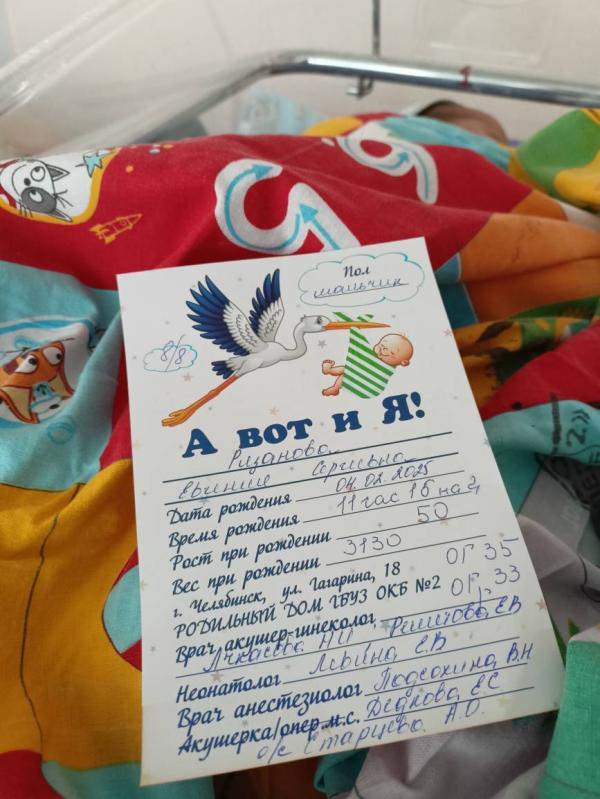 Пол
мальчик
8/8
А вот и Я!
Рязанова
Евгения Сергеевна
Дата рождения 04.02.2025
Время рождения 11 час 16
Рост при рождении 50
Вес при рождении 3130
г. Челябинск, ул. Гагарина, 18 ОГ 35
РОДИЛЬНЫЙ ДОМ ГБУЗ ОКБ №2 ОГ 33
Врач акушер-гинеколог
Н.И. Е.В
Неонатолог Левина Е.В
Врач анестезиолог Подсохина В.Н
Акушерка/опер.м.с. Дедкова Е.С
о/с Старцева А.О.